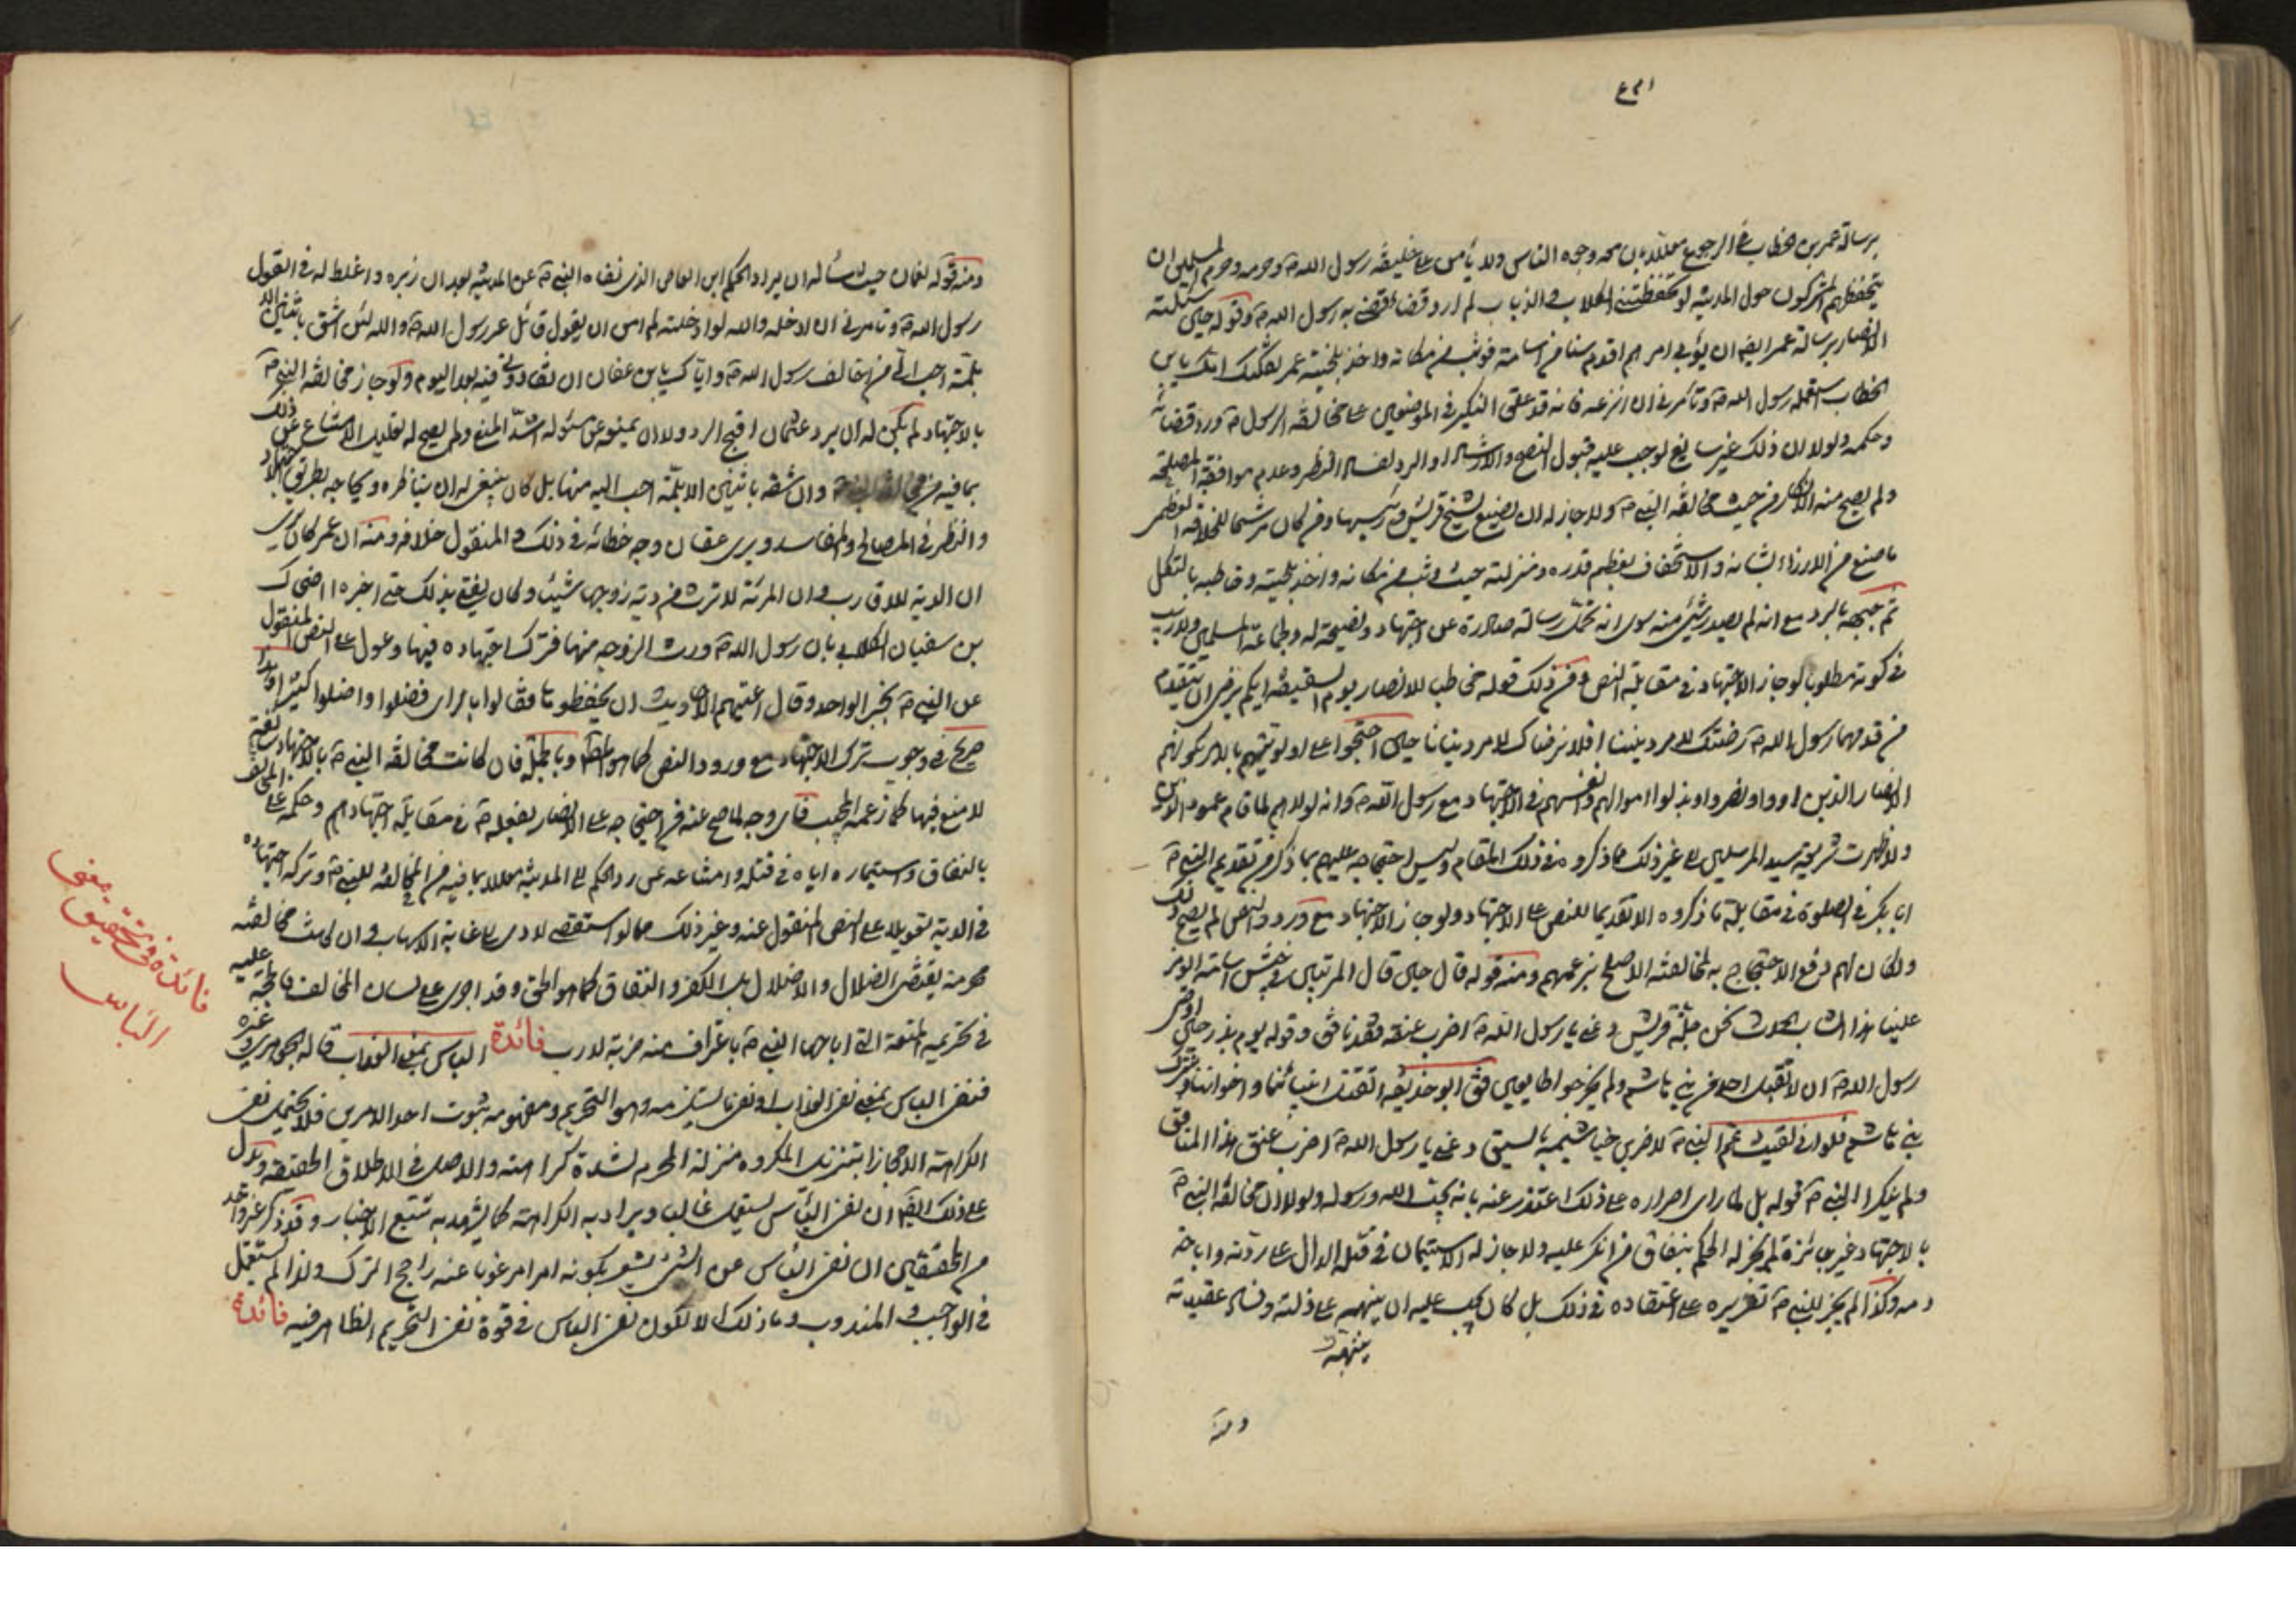 برسالة عمر بن الخطاب في الرجوع معللا بان معه وجوه الناس ولا يأمن على خليفة رسول الله ص وحرمه وحرم المسلمين ان
يتخطفهم المشركون حول المدينة لو تخطفتني الكلاب والذياب لم ارد قضاء قضى به رسول الله ص وقوله حين سئلته
الانصار برسالة عمر ايضا ان يولي امرهم اقدم سنا من اسامة فوثب من مكانه واخذ بلحية عمر ثكلتك امك يابن
الخطاب استعمله رسول الله ص وتامرني ان انزعه فانه قد علق النكير في الموضعين على مخالفة الرسول ص ورد قضائه
وحكمه ولولا ان ذلك غير سايغ لوجب عليه قبول النصح والارشاد او الرد لفساد النظر وعدم موافقة المصلحة
ولم يصح منه الانكار من حيث مخالفة النبي ص ولا جاز له ان يصنع بشيخ قريش ورئيسها ومن كان مرشحا للخلافة العظمى
ما صنع من الازراء بشانه والاستخفاف بعظيم قدره ومنزلته حيث وثب من مكانه واخذ بلحيته وخاطبه بالثكل
ثم جبهه بالرد مع انه لم يصدر شيئ منه سوى انه تحمل رسالة صادرة عن اجتهاد ونصيحة له ولجماعة المسلمين ولا ريب
في كونه مطلوبا لو جاز الاجتهاد في مقابلة النص ومن ذلك قوله مخاطبا للانصار يوم السقيفة ايكم يرضى ان يتقدم
من قدمهما رسول الله ص رضيتك لامر ديننا افلا نرضاك لامر دنيانا حين احتجوا على اولويتهم بالامر بكونهم
الانصار الذين اووا ونصروا وبذلوا اموالهم وانفسهم في الاجتهاد مع رسول الله ص وانه لولاهم لما قام عمود الدين
ولا ظهرت شريعة سيد المرسلين الى غير ذلك مما ذكروه في ذلك المقام وليس احتجاجه عليهم بما ذكر من تقديم النبي ص
ابا بكر في الصلوة في مقابلة ما ذكروه الا تقديما للنص على الاجتهاد ولو جاز الاجتهاد مع ورود النص لم يصح ذلك
ولكان لهم دفع الاحتجاج به لمخالفته الاصلح بزعمهم ومنه قوله قال حين قال
علينا هذا الشاب الحدث نحن جلة قريش دعني يا رسول الله ص اضرب عنقه فقد نافق وقوله يوم بدر حين اوصى
رسول الله ص ان لا يقتل احد من بني هاشم ولم يخرجوا طايعين فقال ابو حذيفة انقتل ابنائنا واخواننا ونترك
بني هاشم فلو اني لقيت عم النبي ص لاضربن خياشيمه بالسيف دعني يا رسول الله ص اضرب عنق هذا المنافق
ولم ينكر النبي ص قوله بل لما راى اصراره على ذلك اعتذر عنه بانه يحب الله ورسوله ولولا ان مخالفة النبي ص
بالاجتهاد غير جائزة لم يجز له الحكم بنفاق من انكر عليه ولا جاز له الاستيمار في قتله الدال على ردته واباحة
دمه وكذا لم يجز للنبي ص تقريره على اعتقاده في ذلك بل كان يجب عليه ان ينهيه على ذلته وفساد عقيدته
ومنه
ومنه قوله لعثمان حيث سئاله ان يرد الحكم ابن العاص الذي نفاه النبي ص عن المدينة بعد ان زبره واغلظ له في القول
رسول الله ص وتامرني ان ادخله والله لو ادخلته لم امن ان يقول قائل غير رسول الله ص والله لئن اشق باثنين
احب الي من ان اخالف رسول الله ص واياك يابن عفان ان تعاودني فيه بعد اليوم ولو جاز مخالفة النبي ص
بالاجتهاد لم يكن له ان يرد عثمان اقبح الرد ولا ان يمنعه عن سئوله اشد المنع ولم يصح له تعليل الامتناع عن ذلك
بما فيه من مخالفة النبي ص وان شقه باثنين احب اليه منها بل كان ينبغي له ان يناظره ويحاجه بطريق الاجتهاد
والنظر في المصالح والمفاسد ويرى عثمان وجه خطائه في ذلك والمنقول خلافه ومنه ان عمر كان يرى
ان الدية للاقارب وان المرئة لا ترث من دية زوجها شيئا وكان يفتي بذلك حتى اخبره الضحاك
بن سفيان الكلابي بان رسول الله ص ورث الزوجة منها فترك اجتهاده فيها وعول على النص المنقول
عن النبي ص بخبر الواحد وقال اعيتهم الاحاديث ان يحفظوها فقالوا بالراى فضلوا واضلوا كثيرا
صريح في وجوب ترك الاجتهاد مع ورود النص كما هو المط وبالجملة فان كانت مخالفة النبي ص بالاجتهاد سائغة
لا منع فيها كما زعمه المجيب فاي وجه لما صح عنه من احتجاجه على الانصار بفعله ص في مقابلة اجتهادهم وحكمه على المخالف
بالنفاق واستيماره اياه في قتله وامتناعه عن رد الحكم الى المدينة معللا بما فيه من المخالفة للنبي ص وتركه اجتهاده
في الدية تعويلا على النص المنقول عنه وغير ذلك مما لو استقصى لادى الى غاية الاسهاب وان كانت مخالفته
محرمة يقتضي الضلال والاضلال بل الكفر والنفاق كما هو الحق وقد اجرى على لسان المخالف فالحجة عليه
في تحريمه المتعة التي اباحها النبي ص باعتراف منه ضربة لازب فائدة الباس بمعنى العذاب قاله الجوهري وغيره
فنفي الباس بمعنى نفي العذاب او نفي ما يستلزمه وهو التحريم ومفهومه ثبوت احد الامرين فلا يحتمل نفي
الكراهة الا مجازا بتنزيل المكروه منزلة المحرم لشدة كراهته والاصل في الاطلاق الحقيقة ويدل
على ذلك ايضا ان نفي الباس يستعمل غالبا ويراد به الكراهة كما يشهد به تتبع الاخبار وقد ذكر غير واحد
من المحققين ان نفي الباس عن الشئ يشعر بكونه امرا مرغوبا عنه راجح الترك ولذا لم يستعمل
في الواجب والمندوب وما ذلك الا لكون نفي الباس في قوة نفي التحريم الظاهر فيه فائدة
فائدة في تحقيق معنى
الباس